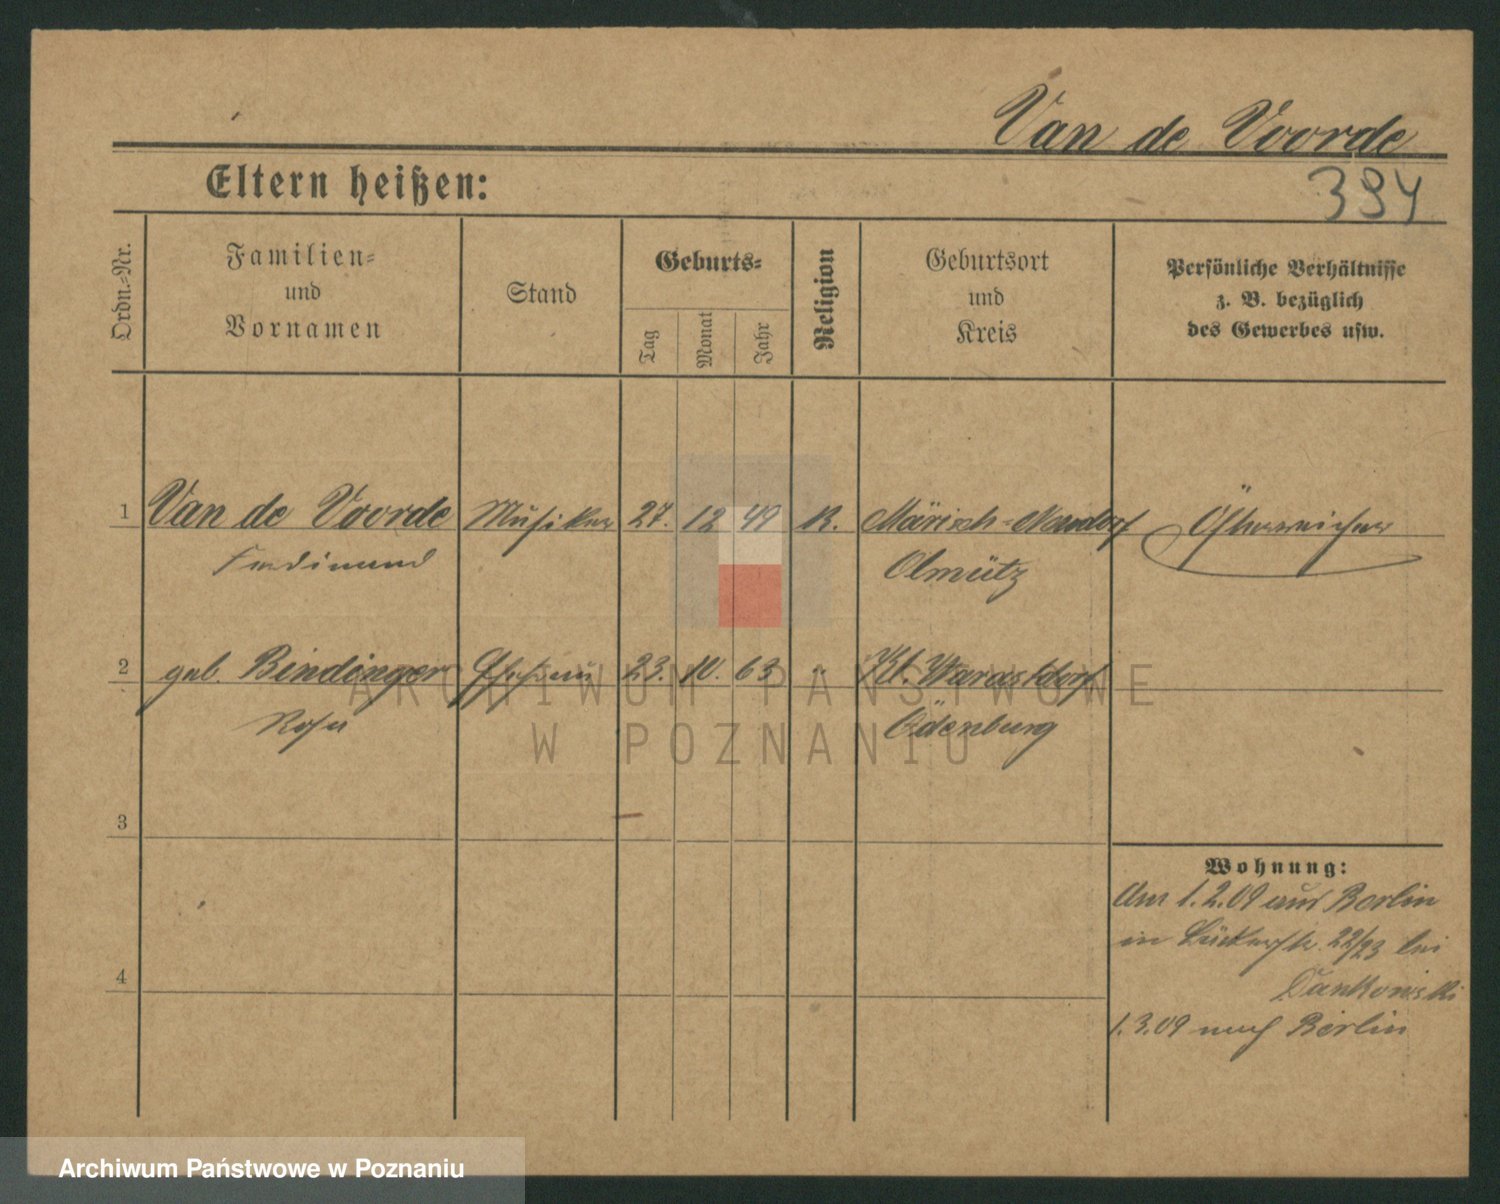 Van de Voorde
Eltern heißen:
394
Ordn.-Nr.
Familien-
und
Vornamen
Stand
Geburts-
Tag
Monat
Jahr
Religion
Geburtsort
und
Kreis
Persönliche Verhältnisse
z. B. bezüglich
des Gewerbes usw.
1 Van de Voorde Musiker 27. 12 49 K. Märisch-Neudorf Österreicher
Ferdinand Olmütz
2 geb. Bindinger Ehefrau 23. 10. 63 " Kl. Warasdorf
Rosa Ödenburg
ARCHIWUM PAŃSTWOWE
W POZNANIU
3
Wohnung:
Am 1.2.09 aus Berlin
in 22/23 bei
4
Dankowski
1.3.09 nach Berlin
Archiwum Państwowe w Poznaniu